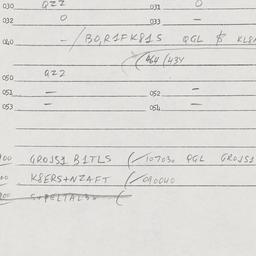 030 QZZ 031 0
032 0 033 –
040 – / B0,R1FK81S QGL $ KL8
464 / 434
050 QZZ
051 – 052 –
053 – 054 –
00 GR0JS1 B1TLS (/107030 QGL GR0JS1
00 K8ERS+NZAFT (/090040
00